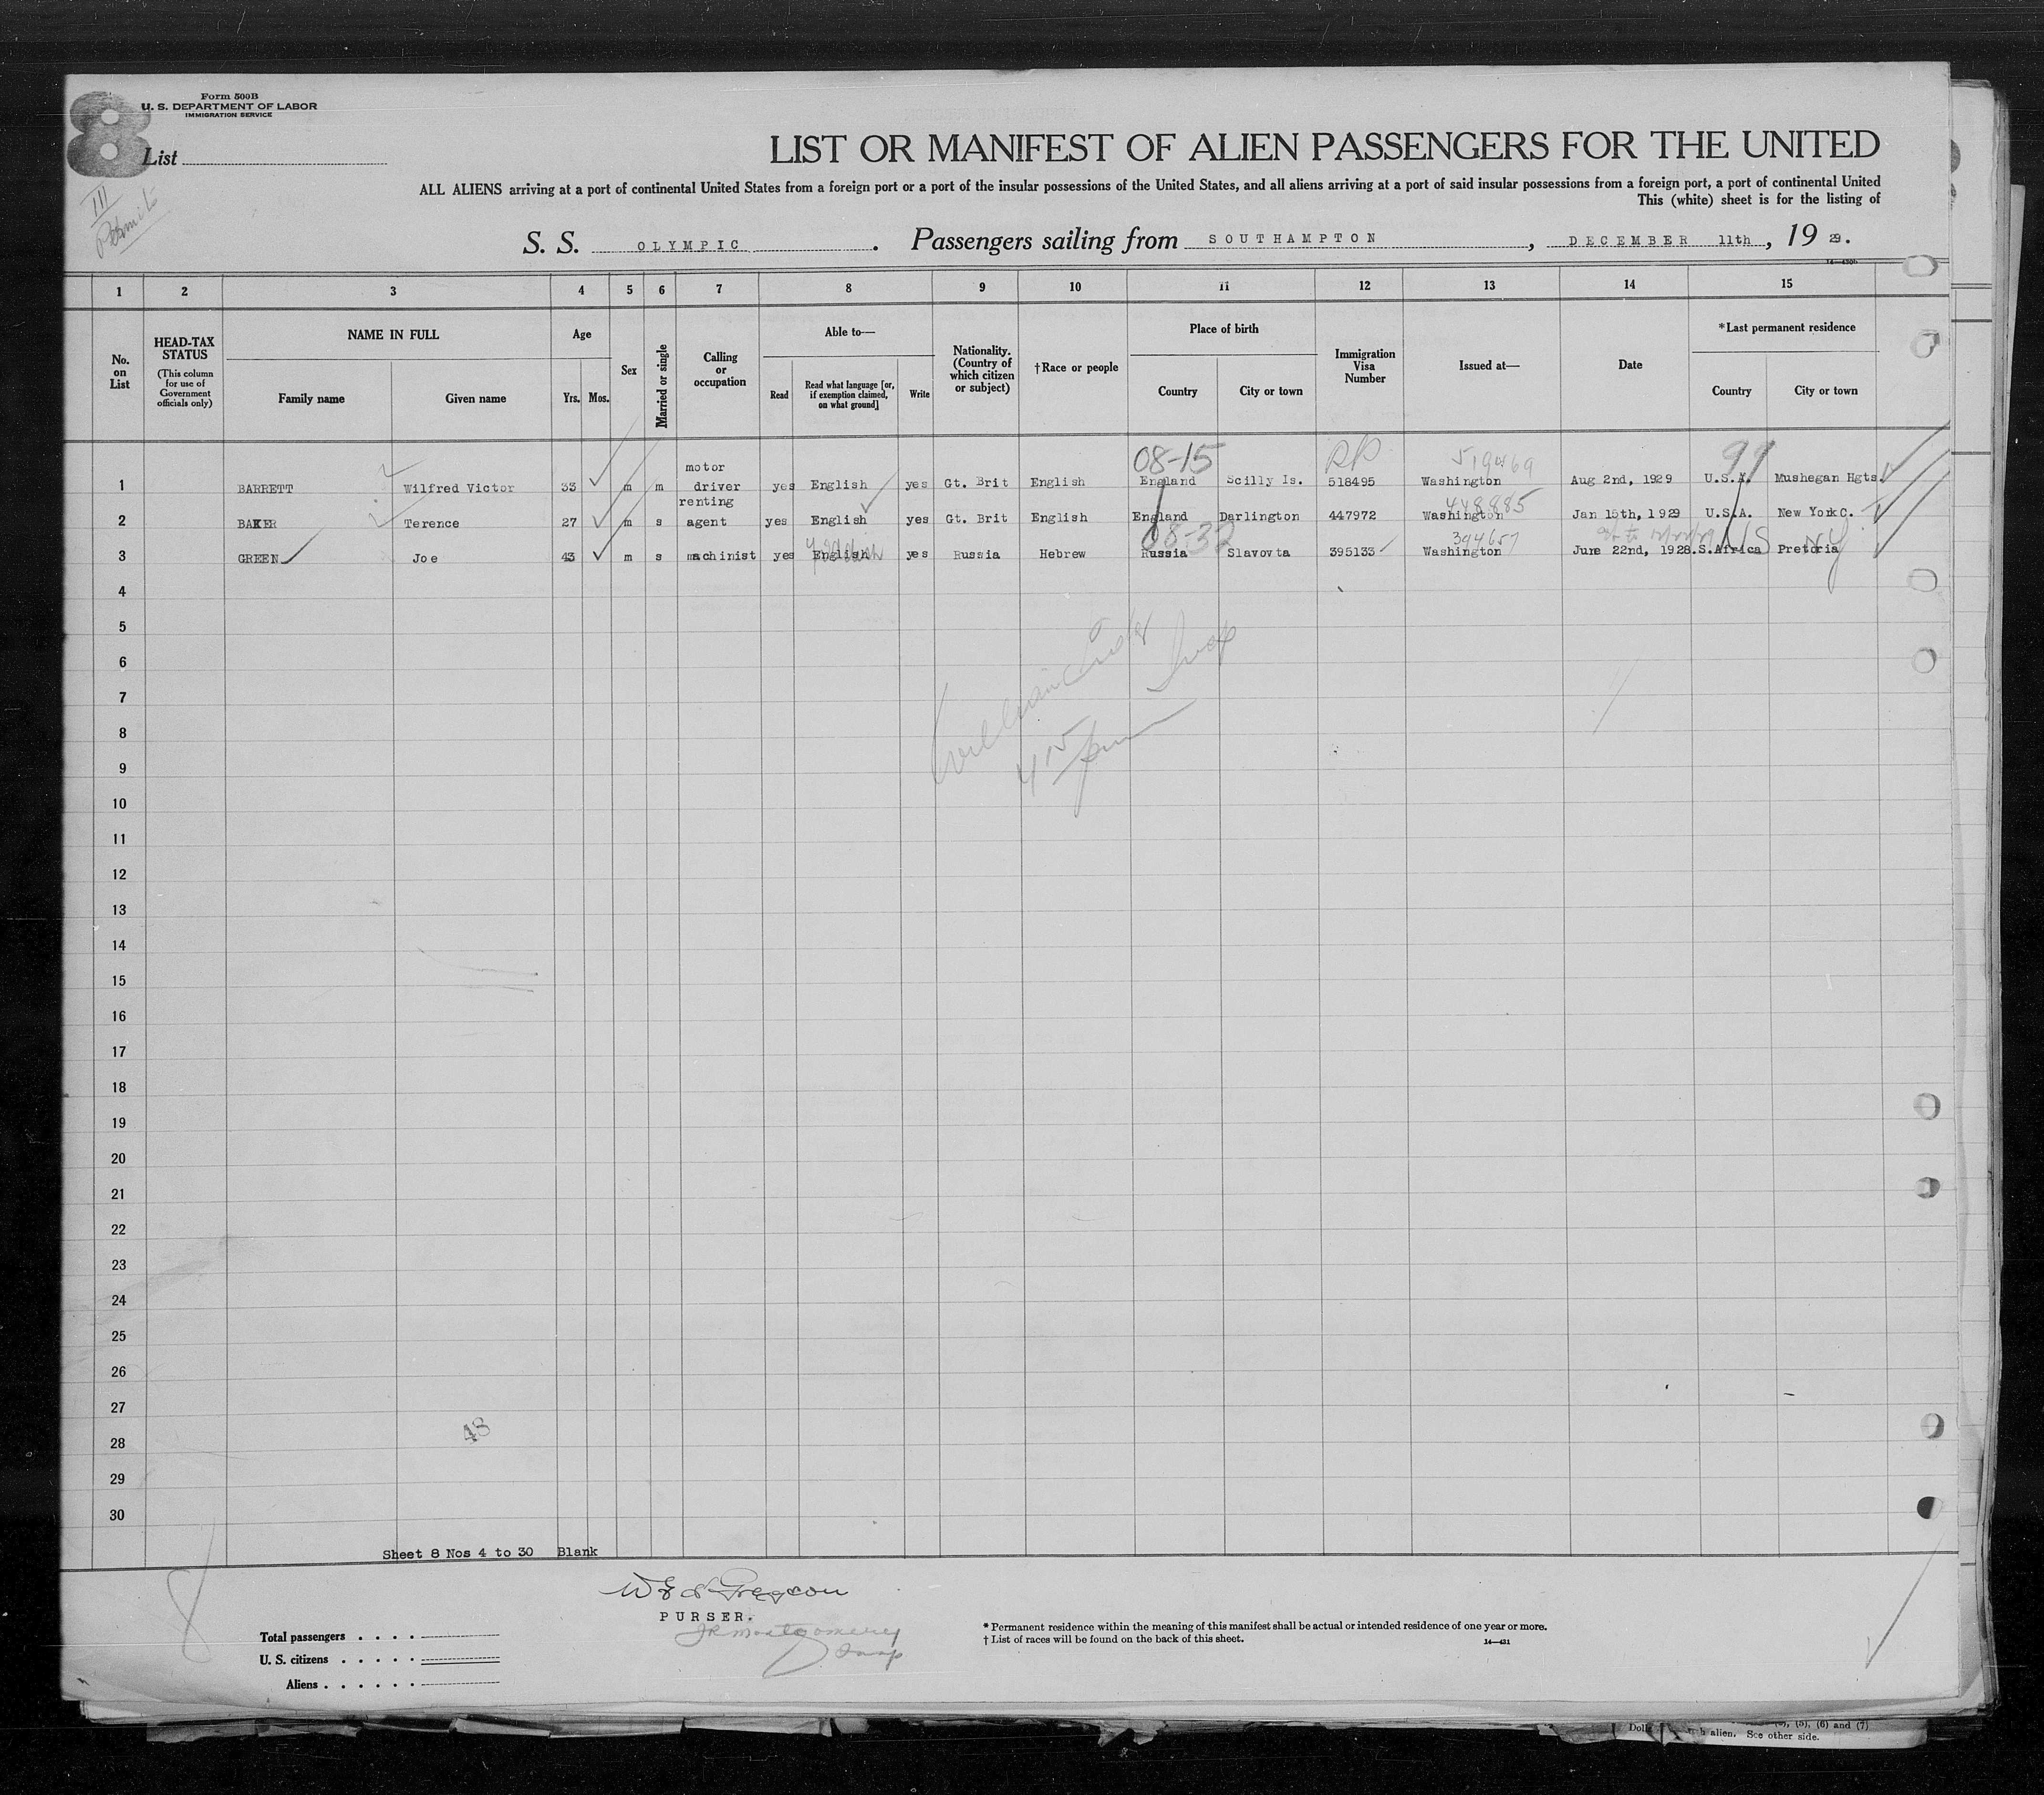 Form 500B
U. S. DEPARTMENT OF LABOR
IMMIGRATION SERVICE
8
List
III
LIST OR MANIFEST OF ALIEN PASSENGERS FOR THE UNITED
ALL ALIENS arriving at a port of continental United States from a foreign port or a port of the insular possessions of the United States, and all aliens arriving at a port of said insular possessions from a foreign port, a port of continental United
This (white) sheet is for the listing of
S. S. OLYMPIC. Passengers sailing from SOUTHAMPTON, DECEMBER 11th, 19 29.
1 2 3 4 5 6 7 8 9 10 11 12 13 14 15
No. on List
HEAD-TAX STATUS
(This column for use of Government officials only)
NAME IN FULL
Family name Given name
Age
Yrs. Mos.
Sex
Married or single
Calling or occupation
Able to—
Read
Read what language [or, if exemption claimed, on what ground]
Write
Nationality. (Country of which citizen or subject)
†Race or people
Place of birth
Country City or town
Immigration Visa Number
Issued at—
Date
*Last permanent residence
Country City or town
08-15 99
1 BARRETT Wilfred Victor 33 m m motor driver yes English yes Gt. Brit English England Scilly Is. 518495 Washington Aug 2nd, 1929 U.S.A. Mushegan Hgts.
448885
2 BAKER Terence 27 m s renting agent yes English yes Gt. Brit English England Darlington 447972 Washington Jan 15th, 1929 U.S.A. New York c.
08-32 394657 US NY
3 GREEN Joe 43 m s machinist yes English yes Russia Hebrew Russia Slavovta 395133 Washington June 22nd, 1928. S.Africa Pretoria
4
5
6
7
8
9
10
11
12
13
14
15
16
17
18
19
20
21
22
23
24
25
26
27
48
28
29
30
Sheet 8 Nos 4 to 30 Blank
8
PURSER.
JR Montgomery
Insp
Total passengers
U. S. citizens
Aliens
* Permanent residence within the meaning of this manifest shall be actual or intended residence of one year or more.
† List of races will be found on the back of this sheet.
14—431
(5), (6) and (7)
alien. See other side.